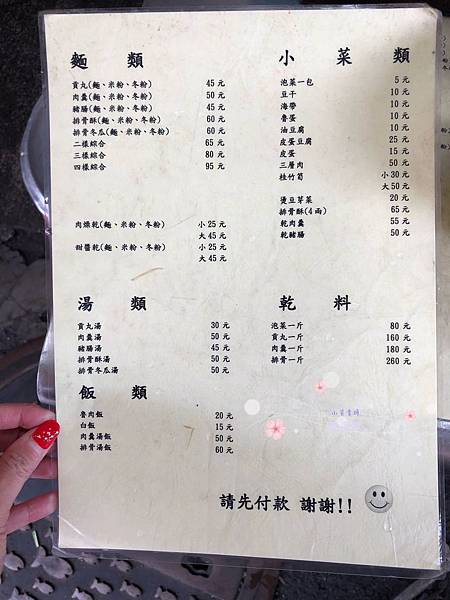 麵 類
貢丸(麵、米粉、冬粉) 45 元
肉羹(麵、米粉、冬粉) 50 元
豬腸(麵、米粉、冬粉) 45 元
排骨酥(麵、米粉、冬粉) 60 元
排骨冬瓜(麵、米粉、冬粉) 60 元
二樣綜合 65 元
三樣綜合 80 元
四樣綜合 95 元
肉燥乾(麵、米粉、冬粉) 小 25 元
大 45 元
甜醬乾(麵、米粉、冬粉) 小 25 元
大 45 元
小 菜 類
泡菜一包 5 元
豆干 10 元
海帶 10 元
魯蛋 10 元
油豆腐 10 元
皮蛋豆腐 25 元
皮蛋 15 元
三層肉 50 元
桂竹筍 小 30 元
大 50 元
燙豆芽菜 20 元
排骨酥(4兩) 65 元
乾肉羹 55 元
乾豬腸 50 元
湯 類
貢丸湯 30 元
肉羹湯 50 元
豬腸湯 45 元
排骨酥湯 50 元
排骨冬瓜湯 50 元
乾 料
泡菜一斤 80 元
貢丸一斤 160 元
肉羹一斤 180 元
排骨一斤 260 元
飯 類
魯肉飯 20 元
白飯 15 元
肉羹湯飯 50 元
排骨湯飯 60 元
請先付款 謝謝!!